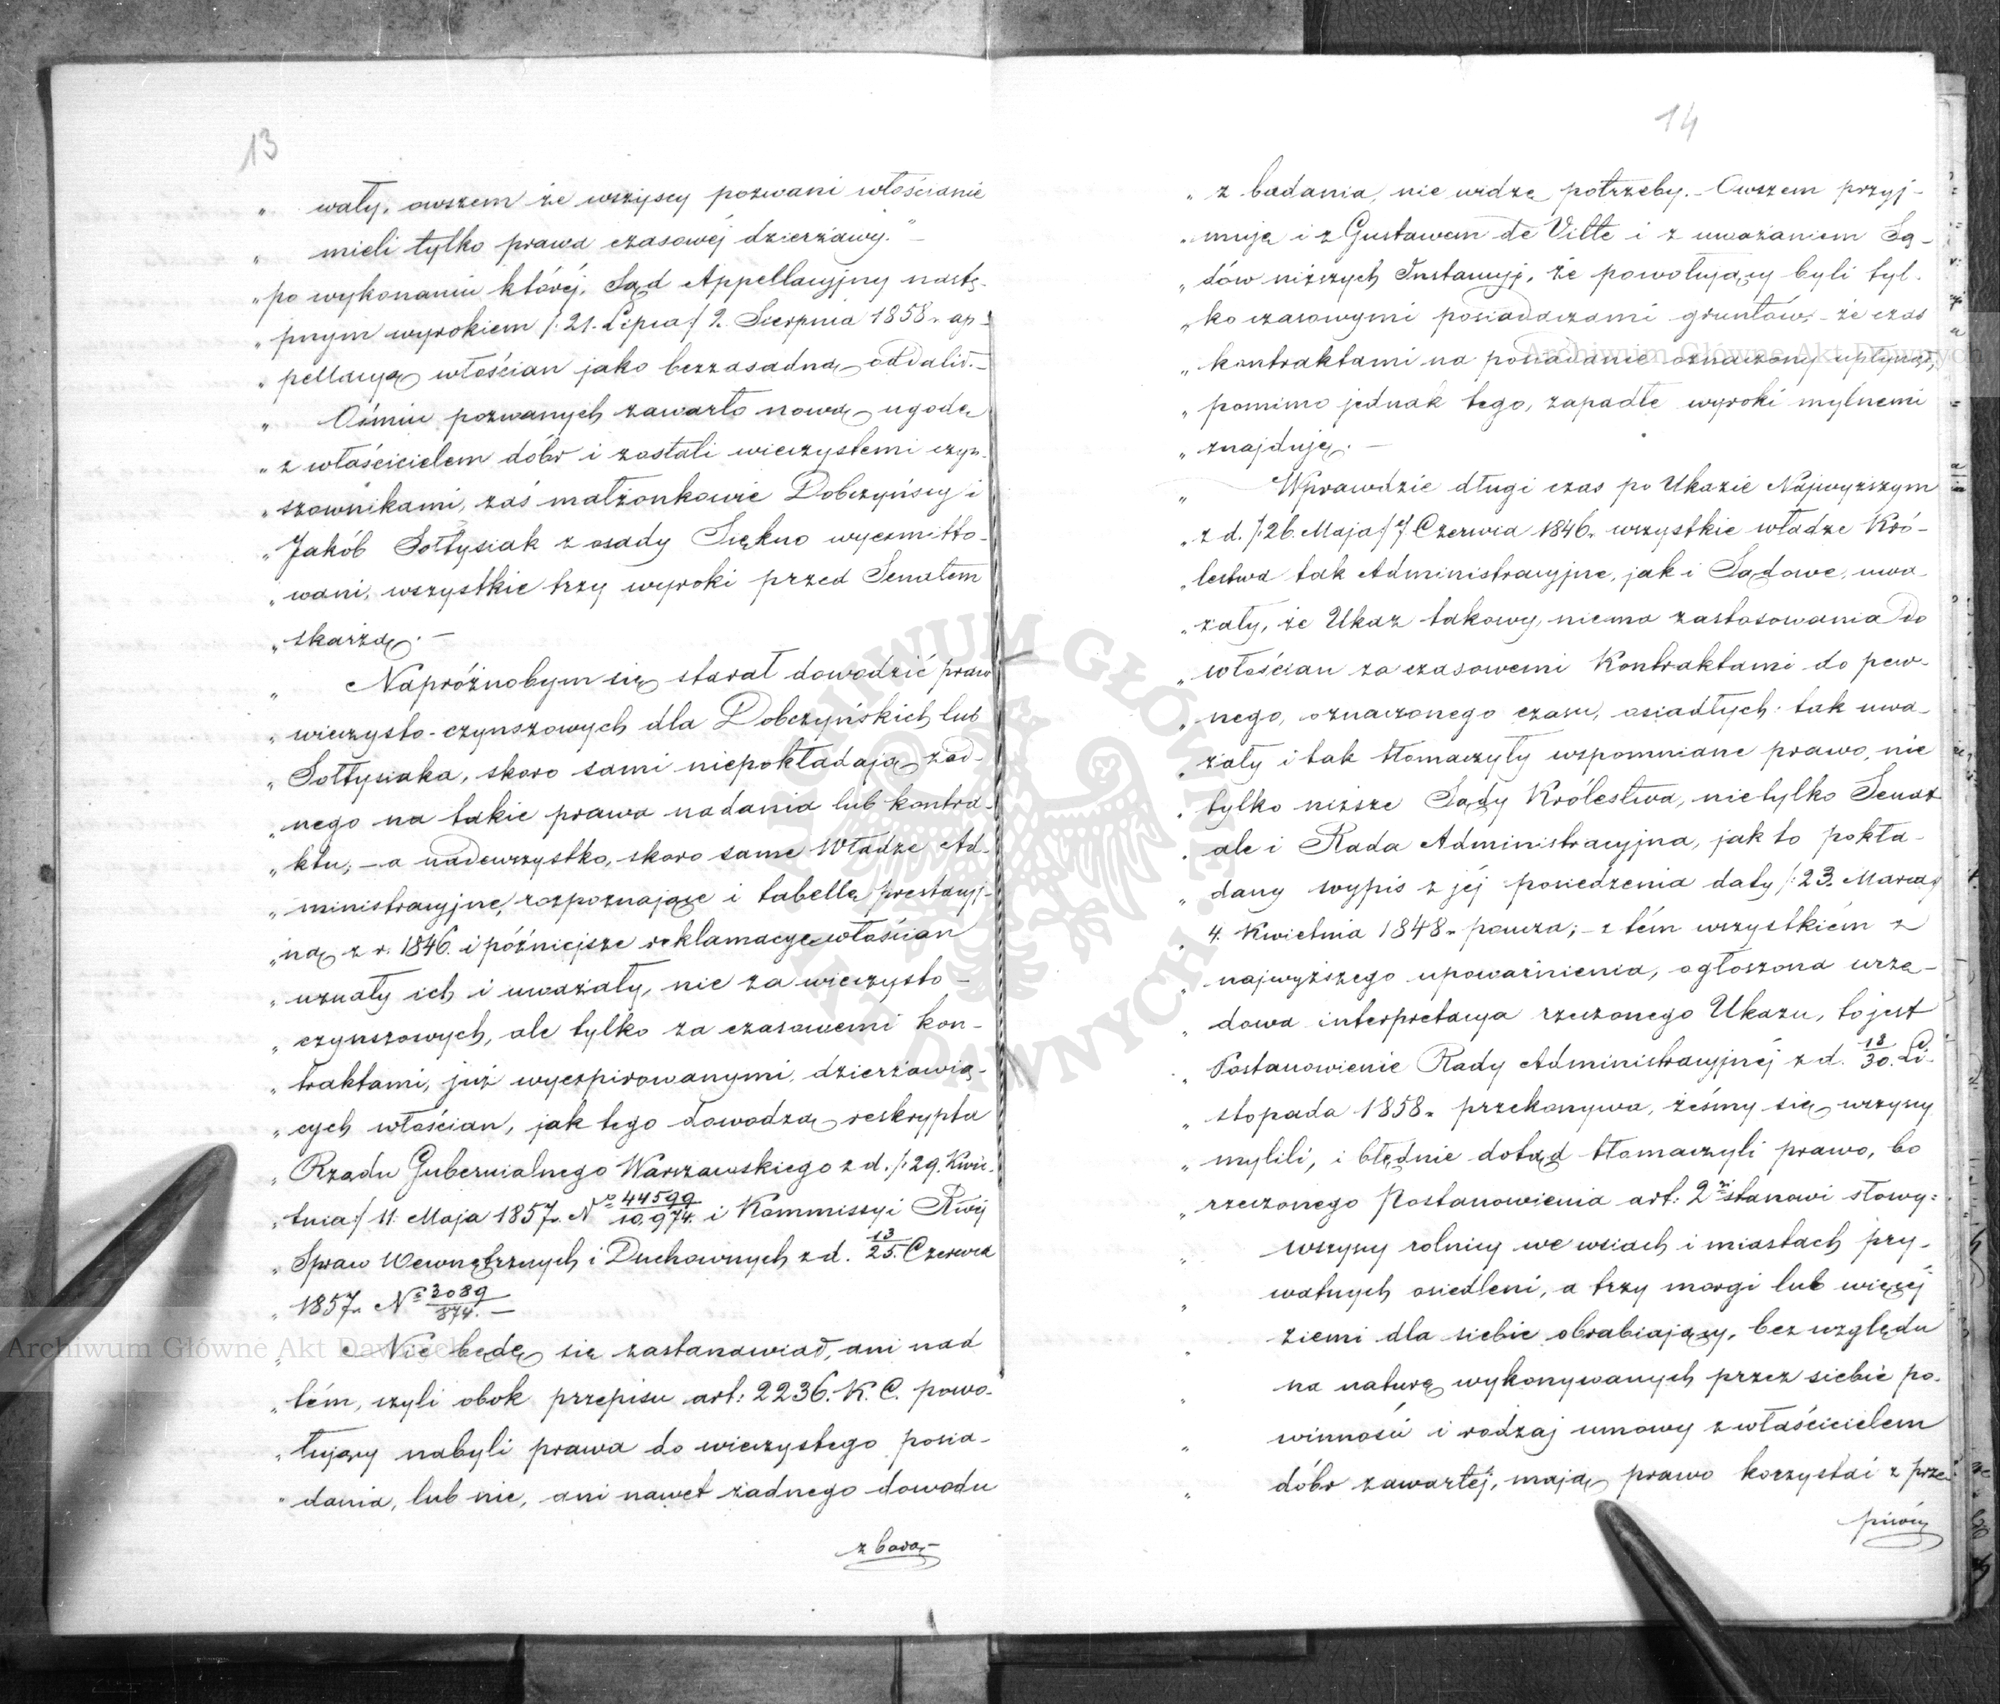 13
„ wały, owszem że wszyscy pozwani włościanie
„ mieli tylko prawa czasowéj dzierżawy." —
„ po wykonaniu któréj, Sąd Appellacyjny nastę-
„ pnym wyrokiem /:21. Lipca/ 2. Sierpnia 1858 r. ap-
„ pellacyą włościan jako bezzasadną oddalił. —
„ Ośmiu pozwanych zawarło nową ugodę
„ z właścicielem dóbr i zostali wieczystemi czyn-
„ szownikami, zaś małżonkowie Dobczyńscy i
„ Jakób Sołtysiak z osady Siękno wyexmitto-
„ wani, wszystkie trzy wyroki przed Senatem
„ skarżą. —
„ Napróżnobym się starał dowodzić praw
„ wieczysto-czynszowych dla Dobczyńskich lub
„ Sołtysiaka, skoro sami niepokładają żad-
„ nego na takie prawa nadania lub kontra-
„ ktu, — a nadewszystko, skoro same Władze Ad-
„ ministracyjne, rozpoznające i tabellę prestacyj-
„ ną z r. 1846. i późniejsze reklamacye włościan
„ uznały ich i uważały, nie za wieczysto —
„ czynszowych, ale tylko za czasowemi kon-
„ traktami, już wyexpirowanymi, dzierżawią-
„ cych włościan, jak tego dowodzą reskrypta
„ Rządu Gubernialnego Warszawskiego z d. /:29. Kwie-
„ tnia:/ 11. Maja 1857 r. No 44599/10,974. i Kommissyi Rwéj
„ Spraw Wewnętrznych i Duchownych z d. 13/25. Czerwca
„ 1857 r. No 3089/874. —
„ Nie będę się zastanawiał, ani nad
„ tém, czyli obok przepisu art: 2236. K. C. powo-
„ łujący nabyli prawa do wieczystego posia-
„ dania, lub nie, ani nawet żadnego dowodu
z bada-
14
„ z badania, nie widzę potrzeby. — Owszem przyj-
„ muję i z Gustawem de Vilte i z uważaniem Są-
„ dów niższych Instancyj, że powołujący byli tyl-
„ ko czasowymi posiadaczami gruntów, — że czas
„ kontraktami na posiadanie oznaczony upłynął,
„ pomimo jednak tego, zapadłe wyroki mylnemi
„ znajduję. —
„ Wprawdzie długi czas po Ukazie Najwyższym
„ z d. /:26. Maja/ 7 Czerwca 1846 r. wszystkie władze Kró-
„ lestwa tak Administracyjne, jak i Sądowe, uwa-
„ żały, że Ukaz takowy, niema zastosowania do
„ włościan za czasowemi Kontraktami do pew-
„ nego, oznaczonego czasu, osiadłych: tak uwa-
„ żały i tak tłomaczyły wspomniane prawo, nie
„ tylko niższe Sądy Królestwa, nietylko Senat
„ ale i Rada Administracyjna, jak to pokła-
„ dany wypis z jéj posiedzenia daty /:23. Marca/
„ 4. Kwietnia 1848 r. poucza; — z tém wszystkiém z
„ najwyższego upoważnienia, ogłoszona urzę-
„ dowa interpretacya rzeczonego Ukazu, to jest
„ Postanowienie Rady Administracyjnéj z d. 18/30. Li-
„ stopada 1858 r. przekonywa, żeśmy się wszyscy
„ mylili, i błędnie dotąd tłomaczyli prawo, bo
„ rzeczonego Postanowienia art: 2gi stanowi słowy:
„ wszyscy rolnicy we wsiach i miastach pry-
„ watnych osiedleni, a trzy morgi lub więcéj
„ ziemi dla siebie obrabiający, bez względu
„ na naturę wykonywanych przez siebie po-
„ winności i rodzaj umowy z właścicielem
„ dóbr zawartéj, mają prawo korzystać z prze-
pisów